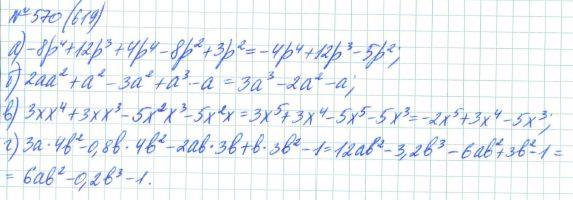 № 570 (619)
а) -8p⁴+12p³+4p⁴-8p²+3p²=-4p⁴+12p³-5p²;
б) 2aa²+a²-3a²+a³-a=3a³-2a²-a;
в) 3xx⁴+3xx³-5x²x³-5x²x=3x⁵+3x⁴-5x⁵-5x³=-2x⁵+3x⁴-5x³;
г) 3a·4b²-0,8b·4b²-2ab·3b+b·3b²-1=12ab²-3,2b³-6ab²+3b³-1=
=6ab²-0,2b³-1.